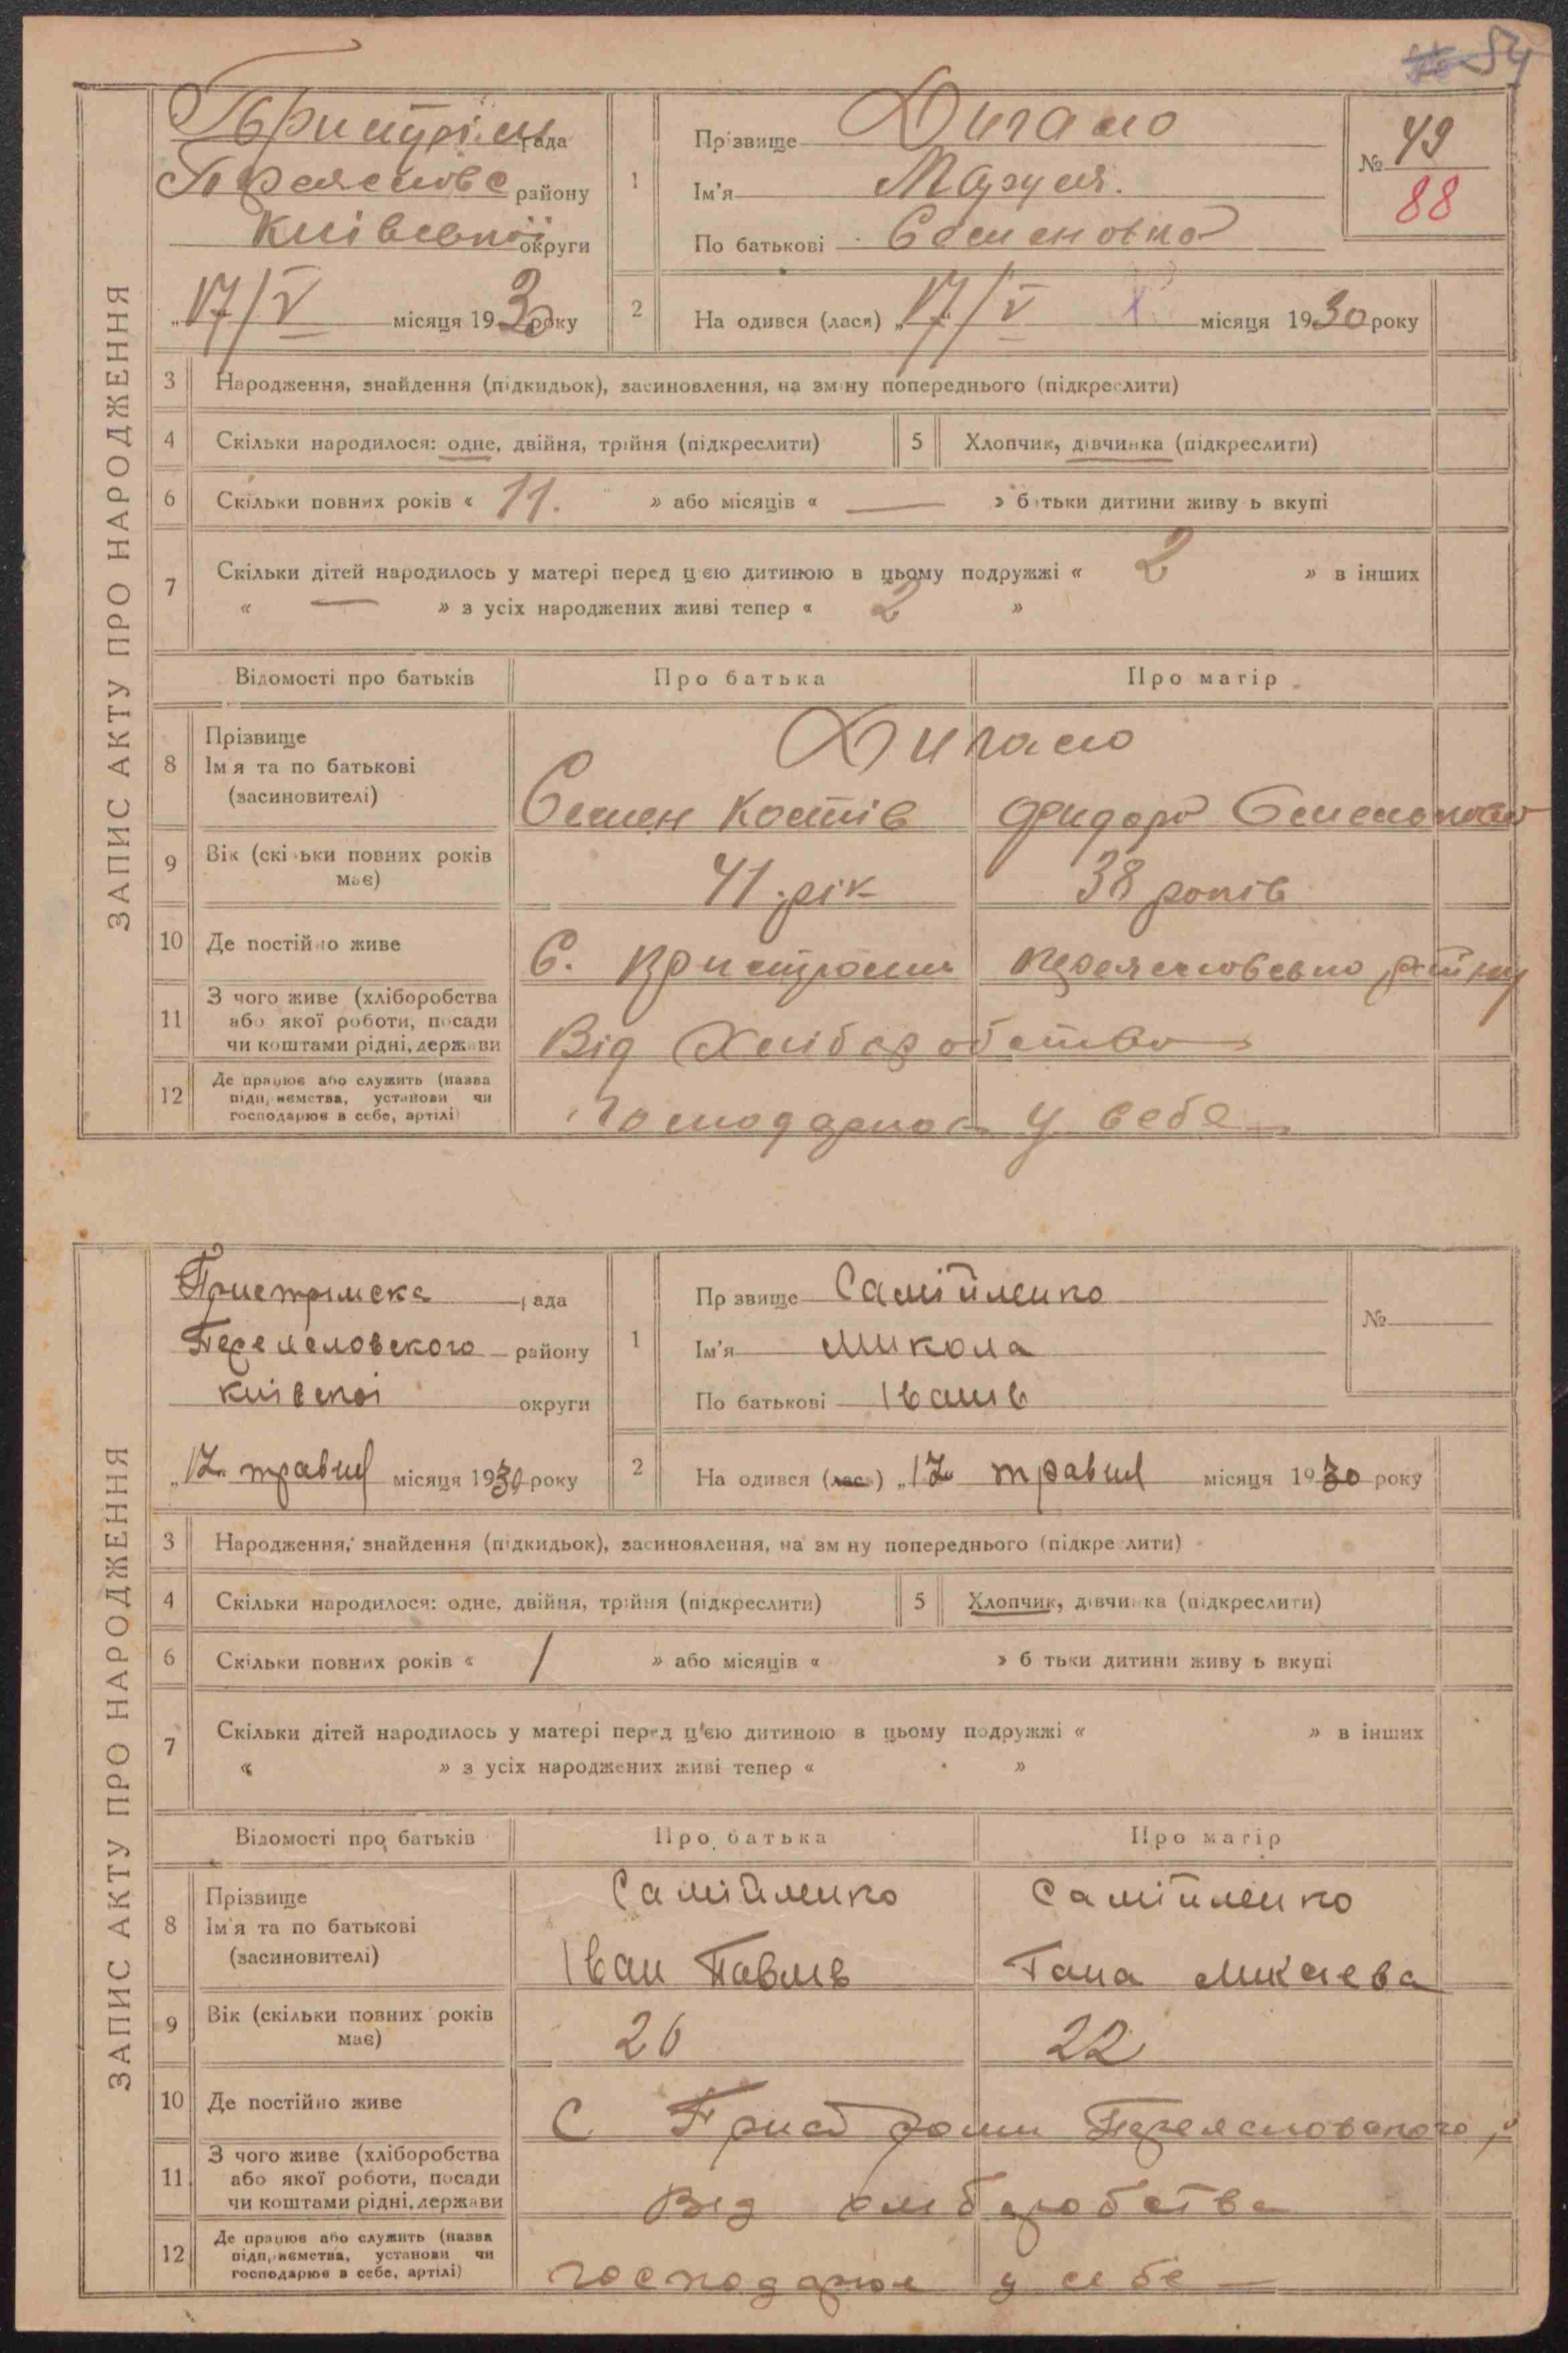 54
ЗАПИС АКТУ ПРО НАРОДЖЕННЯ
рада
району
Київської округи
„17/V місяця 1930 року
1 Прізвище
Ім'я Маруся.
По батькові Семеновна
№ 49
88
2 На одився (лася) „17/V місяця 1930 року
3 Народження, знайдення (підкидьок), засиновлення, на зміну попереднього (підкреслити)
4 Скільки народилося: одне, двійня, трійня (підкреслити) 5 Хлопчик, дівчинка (підкреслити)
6 Скільки повних років « 11. » або місяців « — » б тьки дитини живу ь вкупі
7 Скільки дітей народилось у матері перед цією дитиною в цьому подружжі « 2 » в інших
« — » з усіх народжених живі тепер « 2 »
Відомості про батьків Про батька Про матір
8 Прізвище
Ім'я та по батькові
(засновителі)
Семен Костів
9 Вік (скільки повних років
має)
41 рік 38 років
10 Де постійно живе С.
11 З чого живе (хліборобства
або якої роботи, посади
чи коштами рідні, держави
Від Хліборобства
12 Де працює або служить (назва
підприємства, установи чи
господарює в себе, артілі)
у себе
ЗАПИС АКТУ ПРО НАРОДЖЕННЯ
Пристримска рада
Переясловского району
київскоі округи
„17 травня місяця 1930 року
1 Пр звище Самійленко
Ім'я Микола
По батькові Іванів
№
2 На одився (лася) „17 травня місяця 1930 року
3 Народження, знайдення (підкидьок), засиновлення, на зм ну попереднього (підкре лити)
4 Скільки народилося: одне, двійня, трійня (підкреслити) 5 Хлопчик, дівчинка (підкреслити)
6 Скільки повних років « 1 » або місяців « » б тьки дитини живу ь вкупі
7 Скільки дітей народилось у матері перед ц'єю дитиною в цьому подружжі « » в інших
« » з усіх народжених живі тепер « »
Відомості про батьків Про батька Про матір
8 Прізвище
Ім'я та по батькові
(засиновителі)
Самійленко Самійленко
Іван Павлів Гана
9 Вік (скільки повних років
має)
26 22
10 Де постійно живе
С Переясловского
11 З чого живе (хліборобства
або якої роботи, посади
чи коштами рідні, держави
Від хліборобства
12 Де працює або служить (назва
підприємства, установи чи
господарює в себе, артілі)
господарює у себе